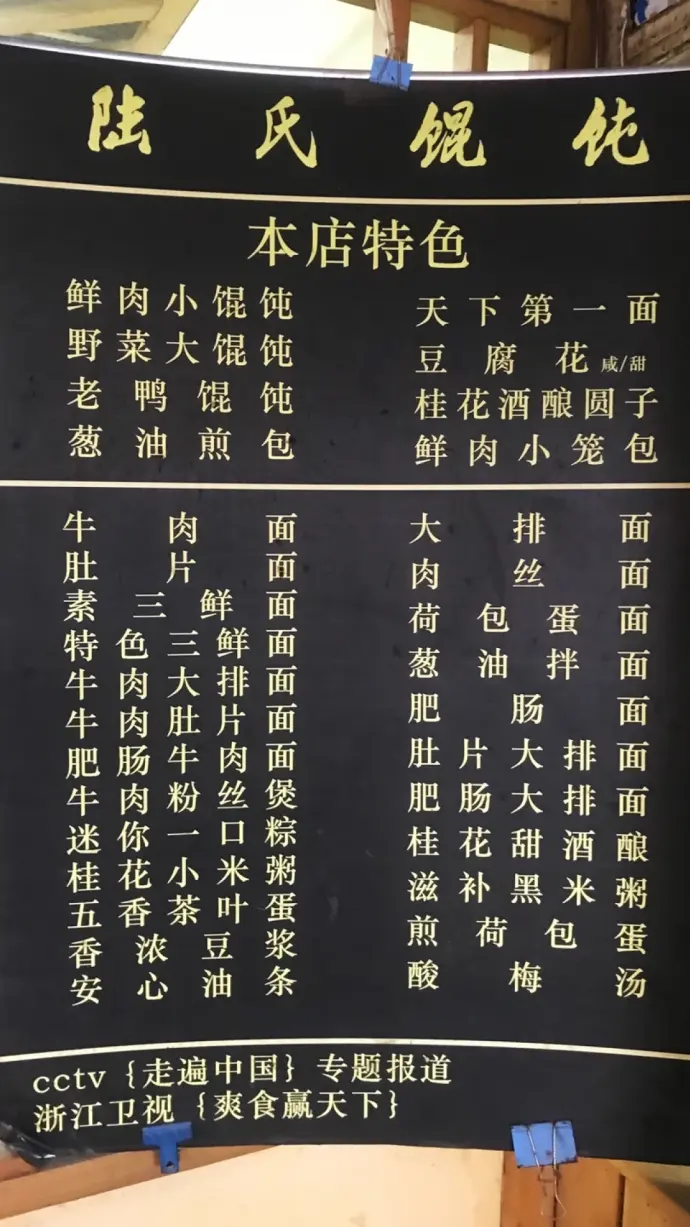 陆氏馄饨
本店特色
鲜肉小馄饨
野菜大馄饨
老鸭馄饨
葱油煎包
天下第一面
豆腐花 咸/甜
桂花酒酿圆子
鲜肉小笼包
牛肉面
肚片面
素三鲜面
特色三鲜面
牛肉大排面
牛肉肚片面
肥肠牛肉面
牛肉粉丝煲
迷你一口粽
桂花小米粥
五香茶叶蛋
香浓豆浆
安心油条
大排面
肉丝面
荷包蛋面
葱油拌面
肥肠面
肚片大排面
肥肠大排面
桂花甜酒酿
滋补黑米粥
煎荷包蛋
酸梅汤
cctv{走遍中国}专题报道
浙江卫视{爽食赢天下}